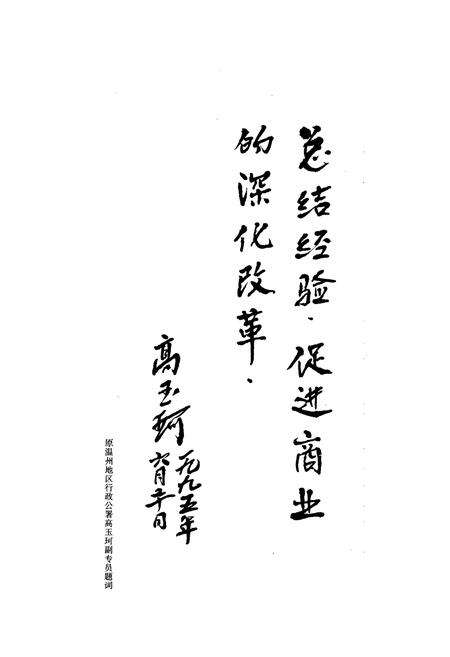 总结经验·促进商业
的深化改革·
高玉珂
一九九五年
六月
原温州地区行政公署高玉珂副专员题词